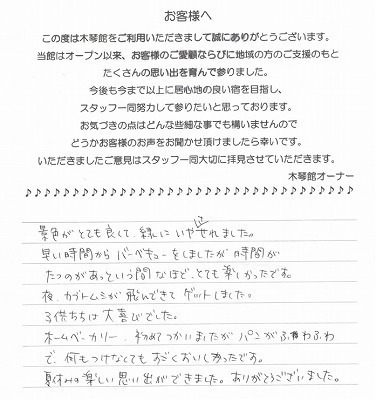 お客様へ
この度は木琴館をご利用いただきまして誠にありがとうございます。
当館はオープン以来、お客様のご愛顧ならびに地域の方のご支援のもと
たくさんの思い出を育んで参りました。
今後も今まで以上に居心地の良い宿を目指し、
スタッフ一同努力して参りたいと思っております。
お気づきの点はどんな些細な事でも構いませんので
どうかお客様のお声をお聞かせ頂けましたら幸いです。
いただきましたご意見はスタッフ一同大切に拝見させていただきます。
木琴館オーナー
景色がとても良くて、緑にいやされました。
早い時間からバーベキューをしましたが時間が
たつのがあっという間なほど、とても楽しかったです。
夜、カブトムシが飛んできてゲットしました。
子供たちは大喜びでした。
ホームベーカリー、初めてつかいましたがパンがふわふわ
で、何もつけなくてもすごくおいしかったです。
夏休みの楽しい思い出ができました。ありがとうございました。